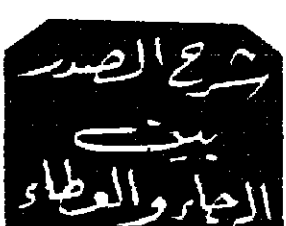 شرح الصدر
بين
الرجاء والعطاء